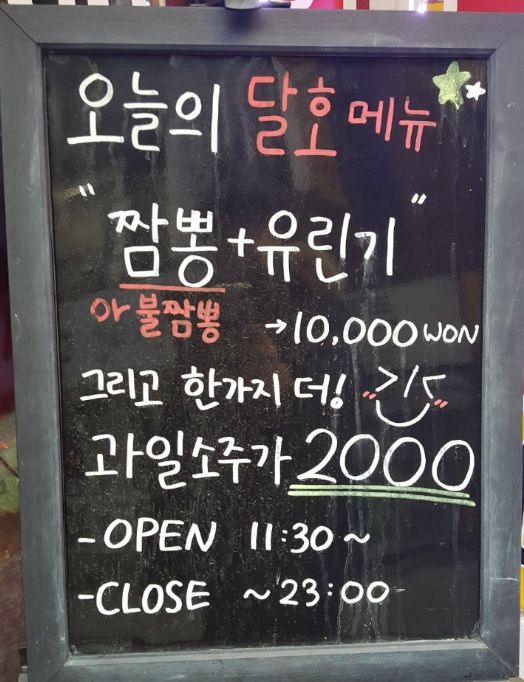 오늘의 달호 메뉴
"짬뽕+유린기"
아 불짬뽕 →10,000 WON
그리고 한가지 더!
과일소주가 2000
-OPEN 11:30~
-CLOSE ~23:00